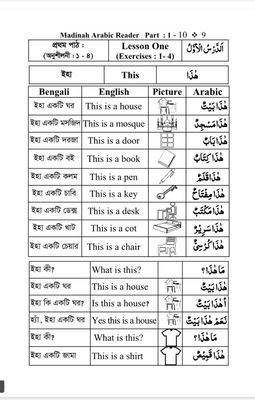 Madinah Arabic Reader Part : 1 - 10 ❖ 9
প্রথম পাঠ : Lesson One اَلدَّرْسُ الْأَوَّلُ
(অনুশীলনী : ১ - ৪) (Exercises : 1- 4)
ইহা This هٰذَا
Bengali English Picture Arabic
ইহা একটি ঘর This is a house هٰذَا بَيْتٌ
ইহা একটি মসজিদ This is a mosque هٰذَا مَسْجِدٌ
ইহা একটি দরজা This is a door هٰذَا بَابٌ
ইহা একটি বই This is a book هٰذَا كِتَابٌ
ইহা একটি কলম This is a pen هٰذَا قَلَمٌ
ইহা একটি চাবি This is a key هٰذَا مِفْتَاحٌ
ইহা একটি ডেস্ক This is a desk هٰذَا مَكْتَبٌ
ইহা একটি খাট This is a cot هٰذَا سَرِيْرٌ
ইহা একটি চেয়ার This is a chair هٰذَا كُرْسِيٌّ
ইহা কী? What is this? مَا هٰذَا؟
ইহা একটি ঘর This is a house هٰذَا بَيْتٌ
ইহা কি একটি ঘর? Is this a house? أَهٰذَا بَيْتٌ
হ্যাঁ, ইহা একটি ঘর Yes this is a house نَعَمْ هٰذَا بَيْتٌ
ইহা কী? What is this? مَا هٰذَا؟
ইহা একটি জামা This is a shirt هٰذَا قَمِيْصٌ